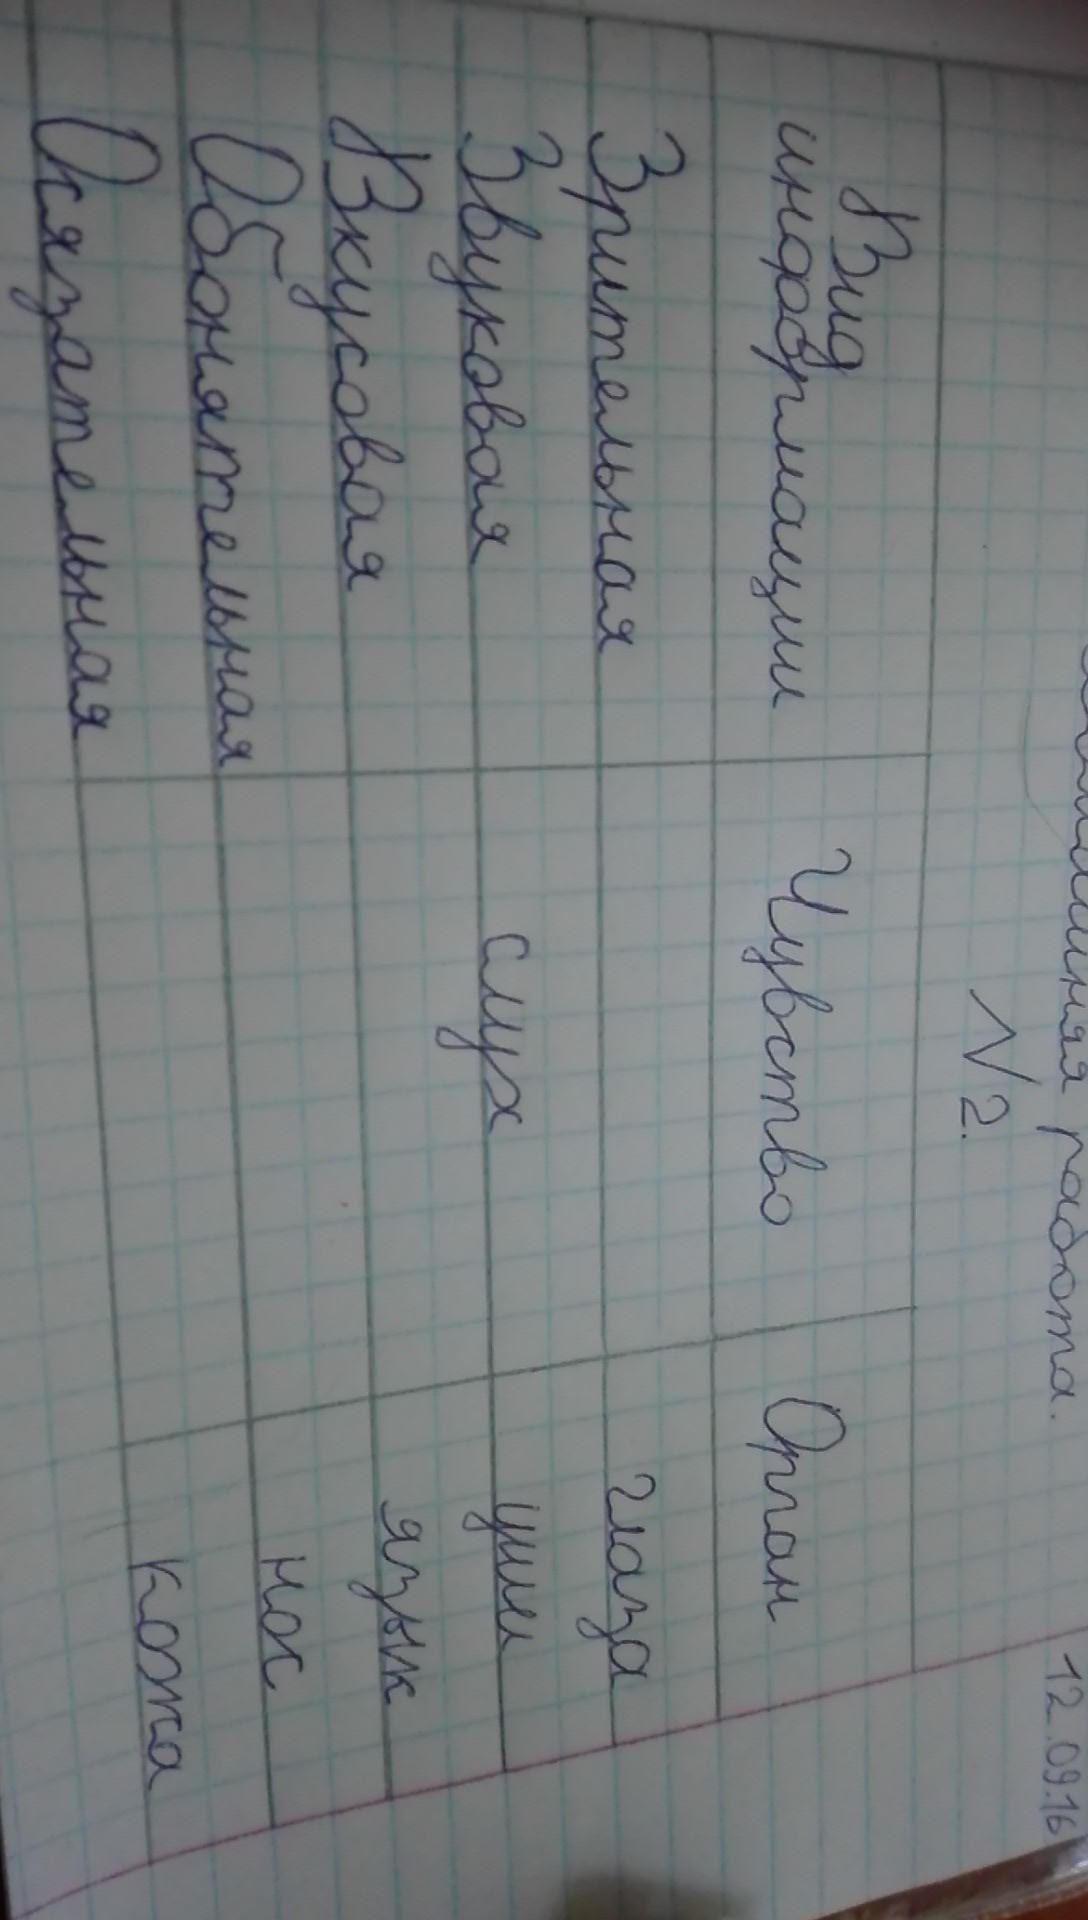 12.09.16
работа.
№2.
Вид
информации Чувство Орган
Зрительная глаза
Звуковая слух уши
Вкусовая язык
Обонятельная нос
Осязательная кожа